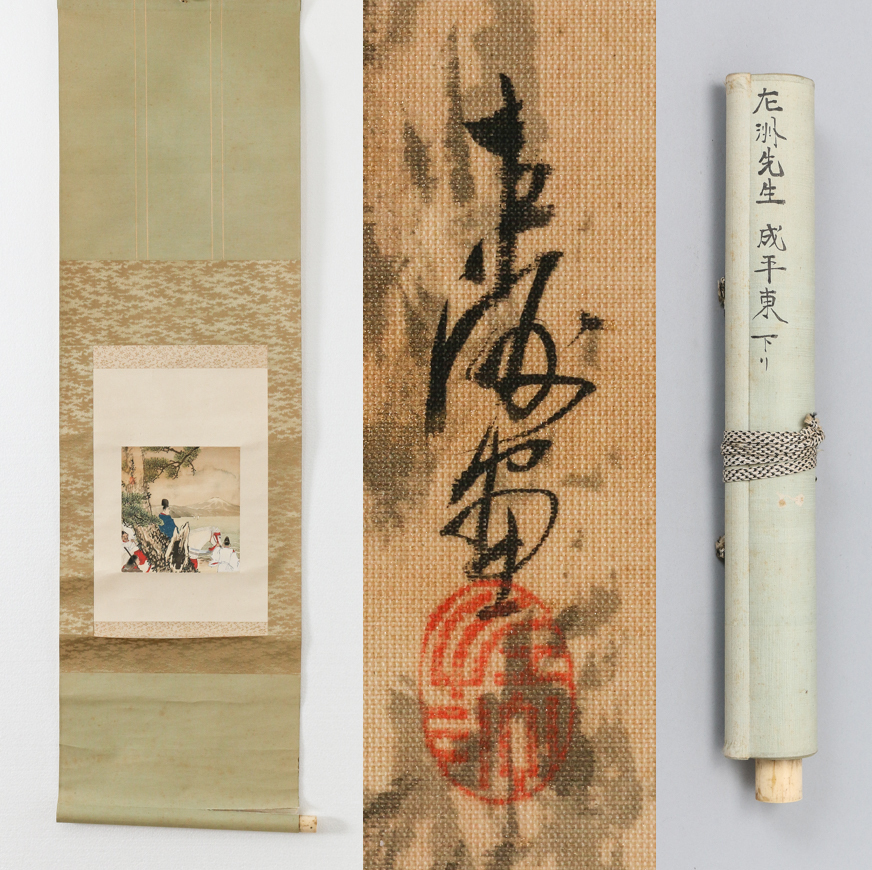 左洲畫
左洲先生 成平東下り